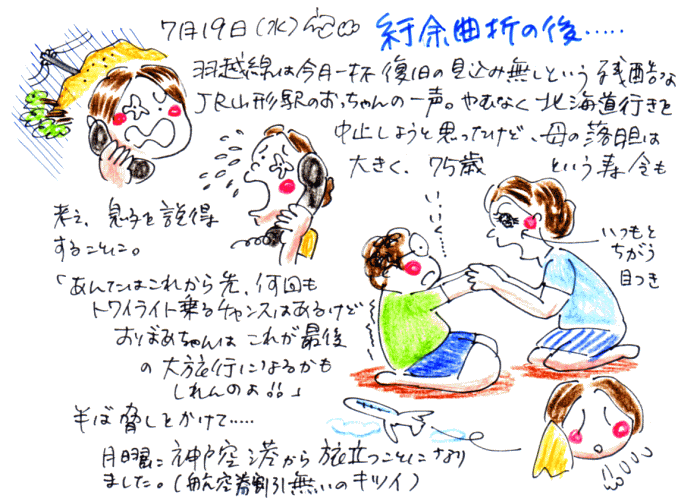 7月19日(水)
紆余曲折の後.....
羽越線は今月一杯復旧の見込み無しという残酷な
JR山形駅のおっちゃんの一声。やむなく北海道行きを
中止しようと思ったけど、母の落胆は
大きく、75歳 という寿命も
考え、息子を説得
することに。
いいく……
いつもと
ちがう
目つき
「あんたはこれから先、何回も
トワイライト乗るチャンスはあるけど
おばあちゃんはこれが最後
の大旅行になるかも
しれんのよ!!」
半ば脅しをかけて.....
月曜に神戸空港から旅立つことになり
ました。(航空券割引無いのキツイ)